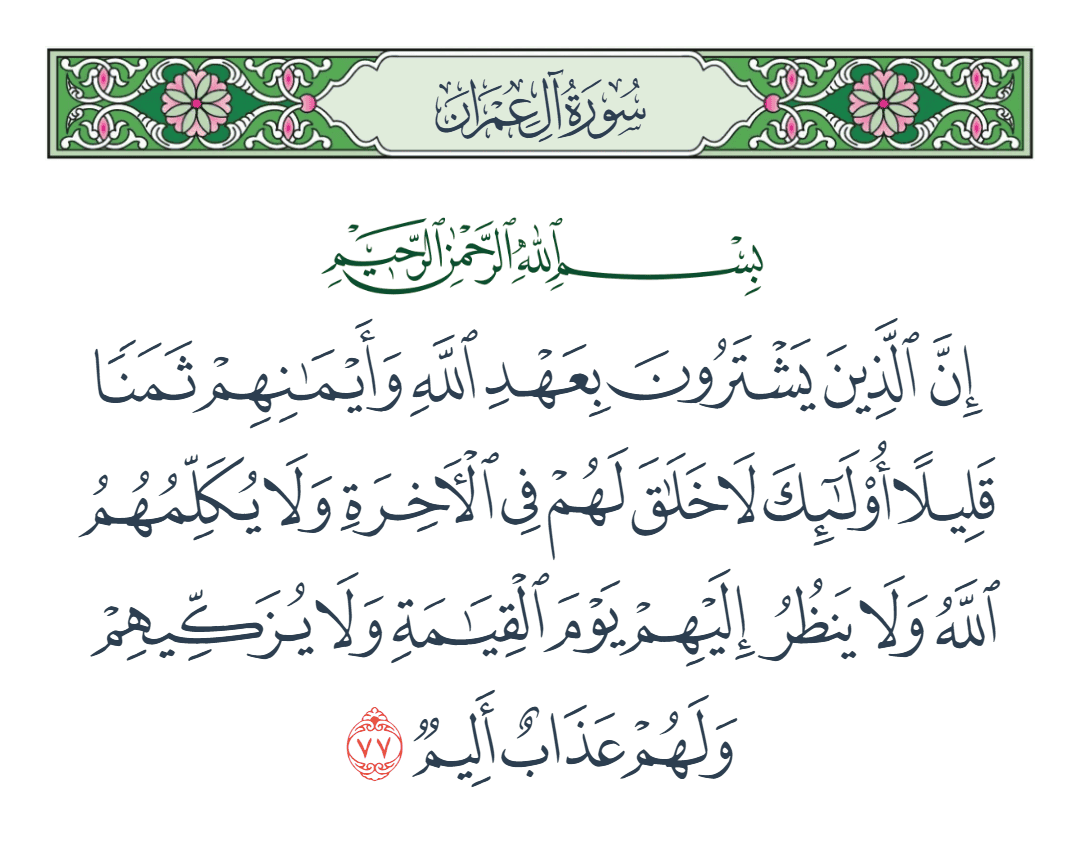 سُورَةُ آلِ عِمۡرَانَ
بِسۡمِ ٱللَّهِ ٱلرَّحۡمَٰنِ ٱلرَّحِيمِ
إِنَّ ٱلَّذِينَ يَشۡتَرُونَ بِعَهۡدِ ٱللَّهِ وَأَيۡمَٰنِهِمۡ ثَمَنٗا
قَلِيلًا أُوْلَٰٓئِكَ لَا خَلَٰقَ لَهُمۡ فِي ٱلۡأٓخِرَةِ وَلَا يُكَلِّمُهُمُ
ٱللَّهُ وَلَا يَنظُرُ إِلَيۡهِمۡ يَوۡمَ ٱلۡقِيَٰمَةِ وَلَا يُزَكِّيهِمۡ
وَلَهُمۡ عَذَابٌ أَلِيمٞ ٧٧